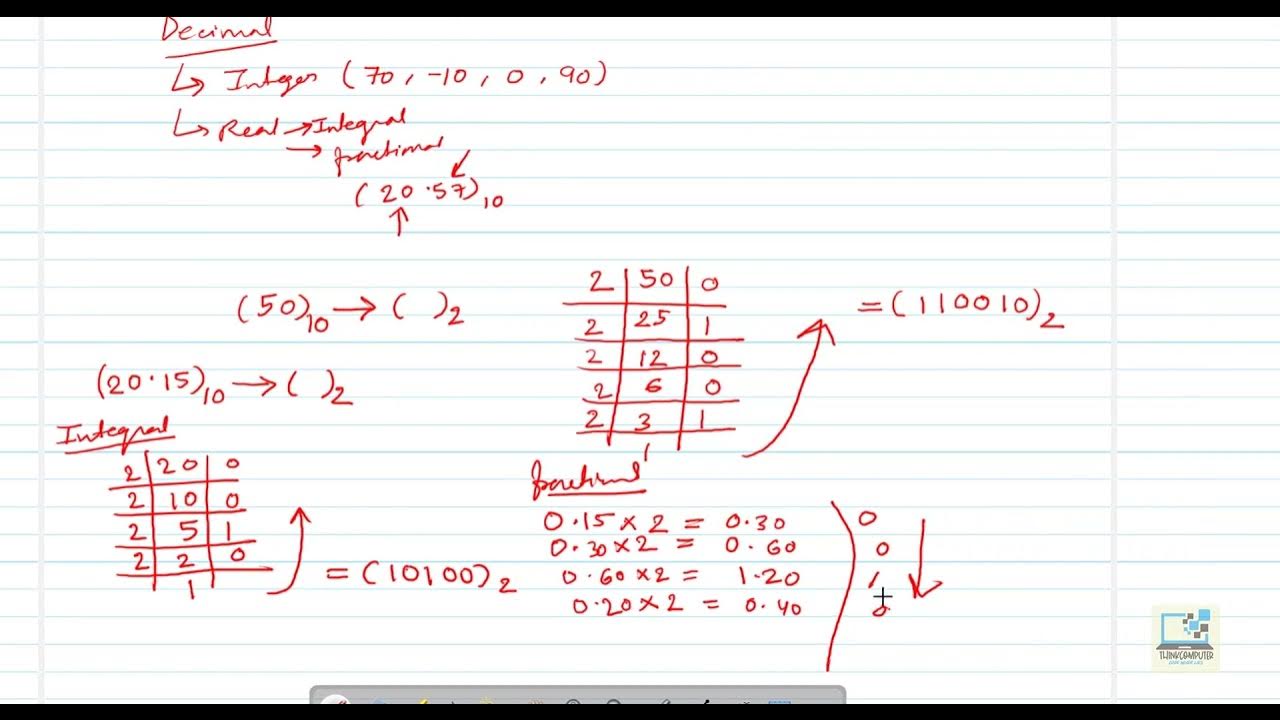 Decimal
↳ Integer (70, -10, 0, 90)
↳ Real → Integral
→ fractional
(20.57)10
(50)10 → ( )2
2 | 50 | 0
2 | 25 | 1
2 | 12 | 0
2 | 6 | 0
2 | 3 | 1
1
= (110010)2
(20.15)10 → ( )2
Integral
2 | 20 | 0
2 | 10 | 0
2 | 5 | 1
2 | 2 | 0
1
= (10100)2
fractional
0.15 × 2 = 0.30 0
0.30 × 2 = 0.60 0
0.60 × 2 = 1.20 1
0.20 × 2 = 0.40 0
THINKCOMPUTER